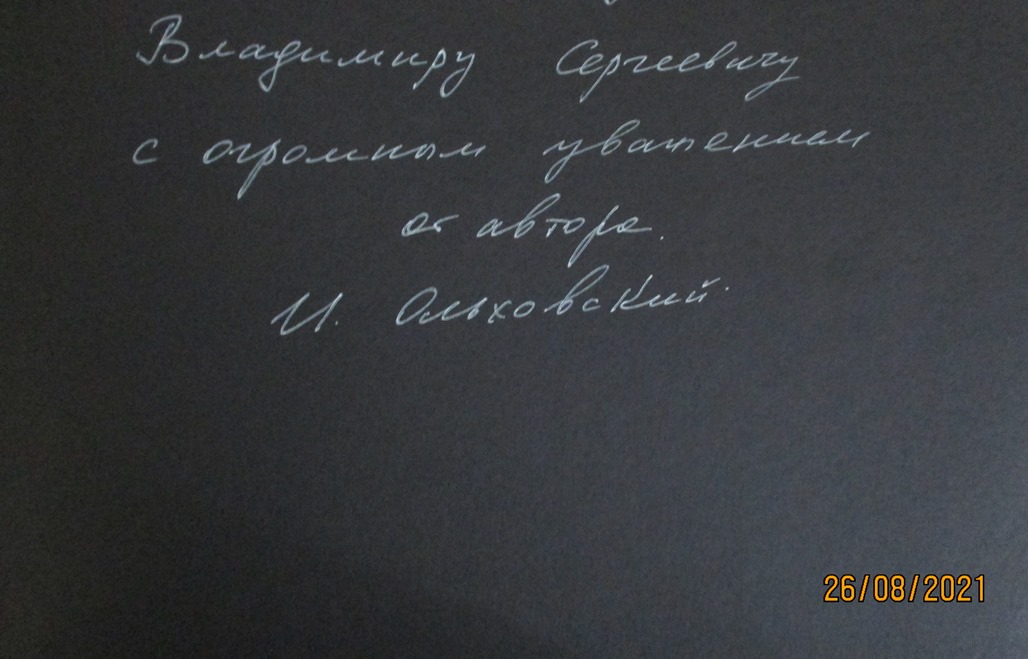 Владимиру Сергеевичу
с огромным уважением
от автора.
И. Ольховский.
26/08/2021